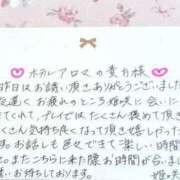 ホテルアロマの貴方様
昨日はお誘い頂きありがとうございました
夜遅くお疲れのところ姫咲に会いに
て頂き、プレイではたくさん褒めて頂
くさん気持ち良くなって頂き嬉しかった
です お話しも色々できて楽しい時間
またこちらに来た際お時間が合いまし
お待ちしております。
姫咲